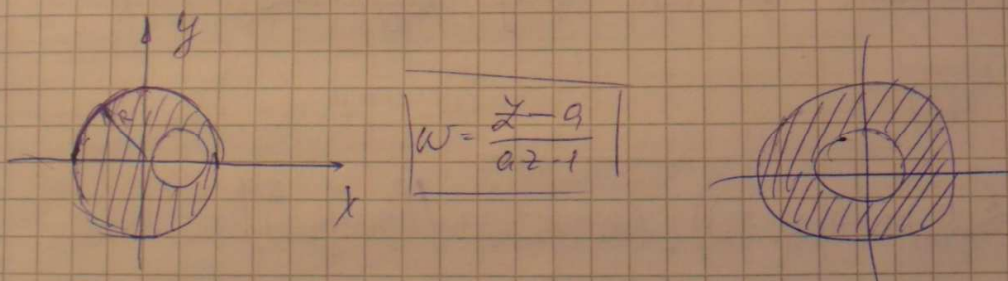 y
R
x
w = \frac{z-a}{az-1}